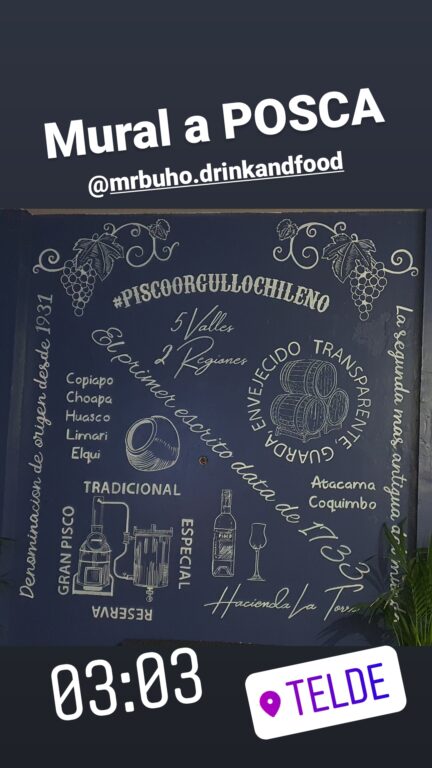 Mural a POSCA
@mrbuho.drinkandfood
#PISCOORGULLOCHILENO
5 Valles
2 Regiones
Denominacion de origen desde 1931
El primer escrito data de 1733
La segunda mas antigua
Copiapo
Choapa
Huasco
Limari
Elqui
ENVEJECIDO TRANSPARENTE GUARDA
Atacama
Coquimbo
TRADICIONAL
GRAN PISCO
ESPECIAL
RESERVA
PISCO
Hacienda La
03:03
TELDE